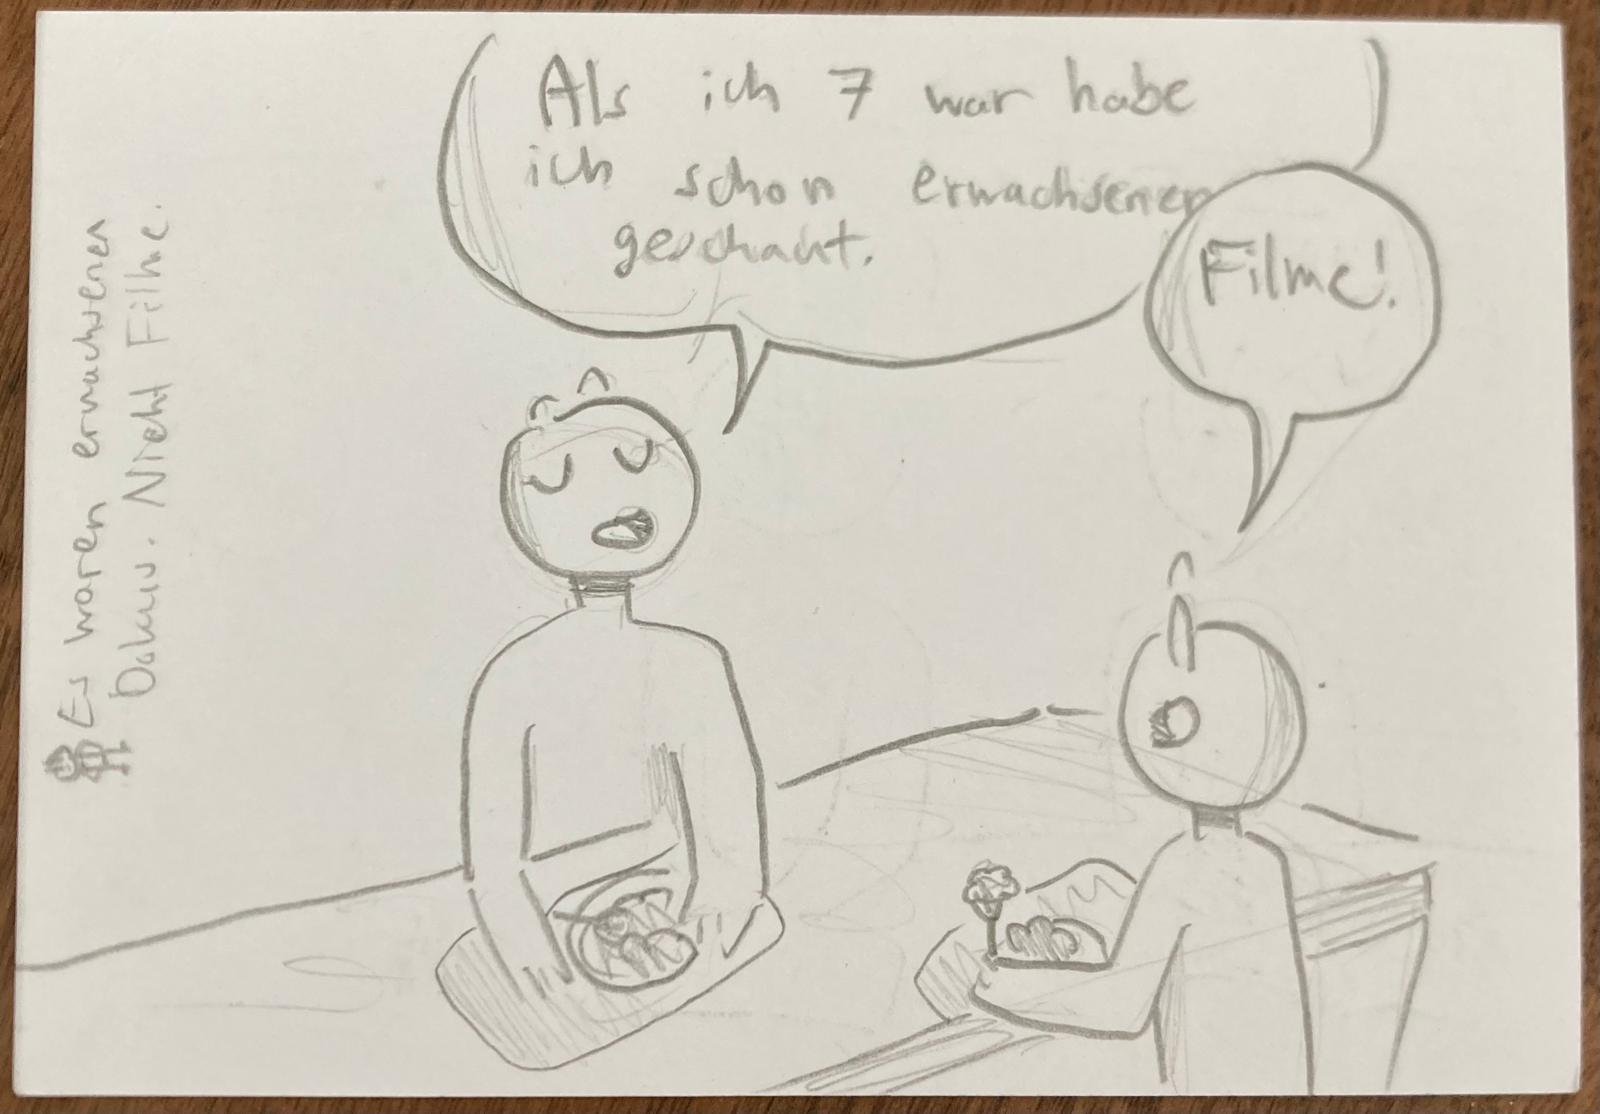 Als ich 7 war habe
ich schon erwachsenen
geschaut.
Filme!
Es waren erwachsenen
Dokus. Nicht Filme.